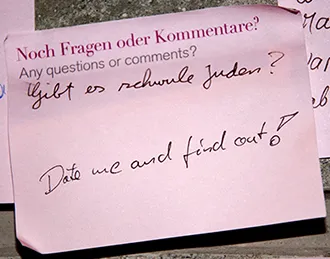 Noch Fragen oder Kommentare?
Any questions or comments?
Gibt es schwule Juden?
Date me and find out!